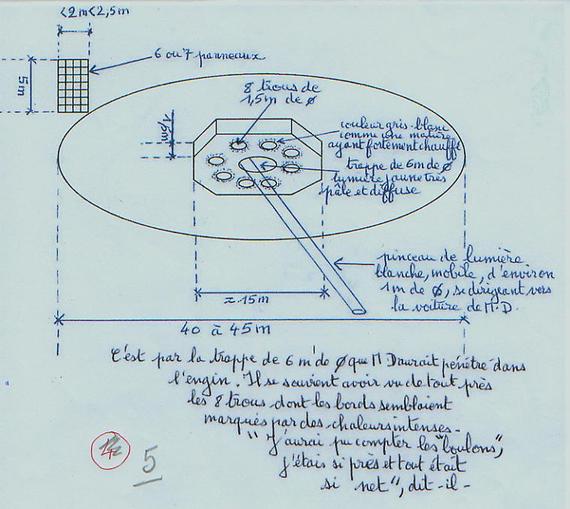 <2m<2,5m
6 ou 7 panneaux
5m
8 trous de
1,5m de ø
1,5m
couleur gris-blanc
comme une matière
ayant fortement chauffé
trappe de 6m de ø
lumière jaune très
pâle et diffuse
pinceau de lumière
blanche, mobile, d'environ
1m de ø, se dirigeant vers
la voiture de M.D.
≈15m
40 à 45m
C'est par la trappe de 6 m de ø que M D aurait pénétré dans
l'engin. Il se souvient avoir vu de tout près
les 8 trous dont les bords semblaient
marqués par des chaleurs intenses.
"J'aurai pu compter les "boulons",
j'étais si près et tout était
si net", dit-il-
5